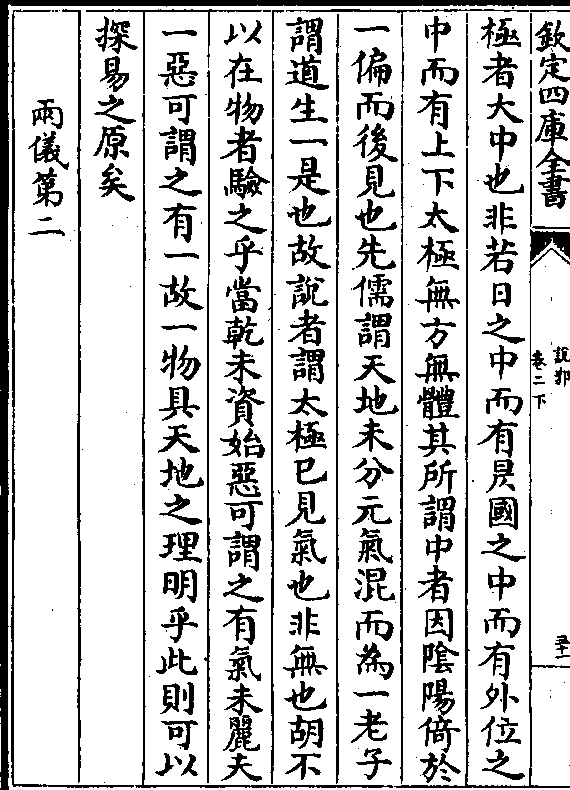 欽定四庫全書
說郛
卷二下
極者大中也非若日之中而有昃國之中而有外位之
中而有上下太極無方無體其所謂中者因隂陽倚於
一偏而後見也先儒謂天地未分元氣混而為一老子
謂道生一是也故說者謂太極已見氣也非無也胡不
以在物者驗之乎當乾未資始惡可謂之有氣未麗夫
一惡可謂之有一故一物具天地之理明乎此則可以
探易之原矣
兩儀第二